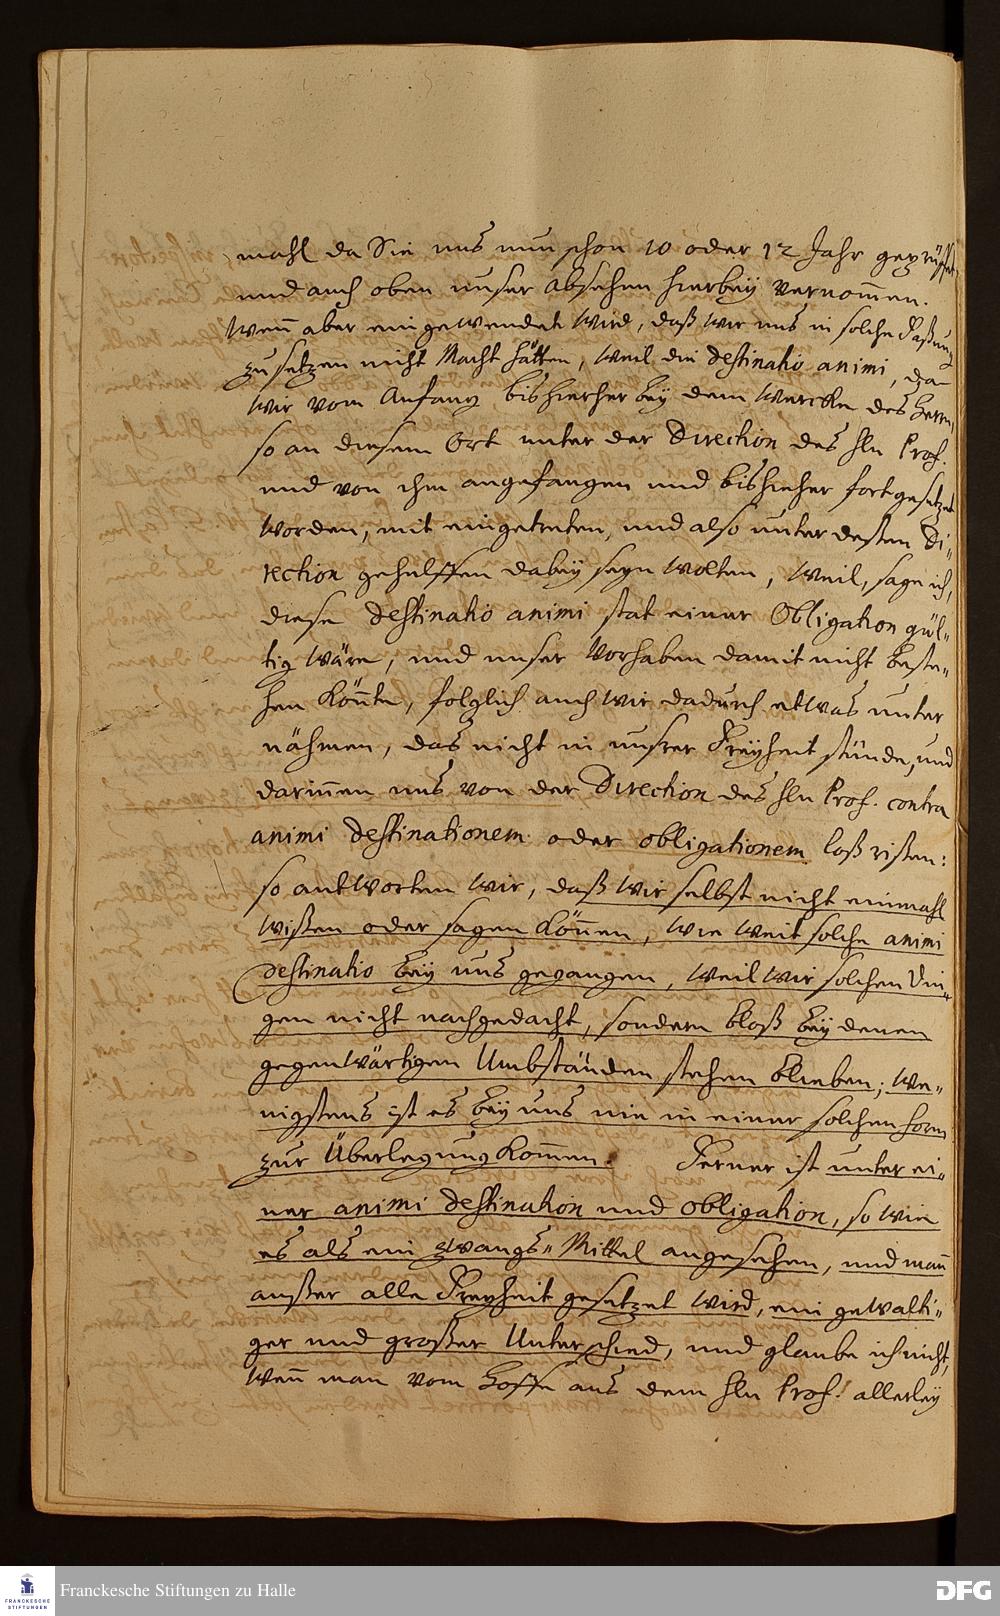 mahl da Sie uns nun schon 10 oder 12 Jahr geprüfet
und auch oben unser Absehen hierbey vernom̃en.
Wen̅ aber eingewendet wird, daß wir uns in solche Faßung
zu setzen nicht Macht hätten, weil die destinatio animi, da
wir vom Anfang bishierher bey dem Wercke des Herrn,
so an diesem Ort unter der Direction des Hln Prof.
und von ihm angefangen und bishieher fortgesetzet
worden, mit eingetreten, und also unter deßen Di-
rection gehülffen dabey seyn wolten, weil, sage ich,
diese destinatio animi stat einer Obligation gül-
tig wäre, und unser Vorhaben damit nicht beste-
hen kön̅te, folglich auch wir dadurch etwas unter
nähmen, das nicht in unsrer Freyheit stünde, und
darin̅en uns von der Direction des Hln Prof. contra
animi destinationem oder obligationem loß rißen:
so antworten wir, daß wir selbst nicht einmahl
wißen oder sagen kön̅en, wie weit solche animi
destinatio bey uns gegangen, weil wir solchen Din-
gen nicht nachgedacht, sondern bloß bey denen
gegenwärtigen Umbständen stehen blieben; we-
nigstens ist es bey uns nie in einer solchen form
zur Überlegung kom̃en. Ferner ist unter ei-
ner animi destination und obligation, so wie
es als ein Zwangs-Mittel angesehen, und man̅
außer alle Freyheit gesetzet wird, ein gewalti-
ger und großer Unterschied, und glaube ich nicht,
wen̅ man vom Hoffe aus dem Hln Prof. allerley
Franckesche Stiftungen zu Halle
FRANCKESCHE
STIFTUNGEN
DFG